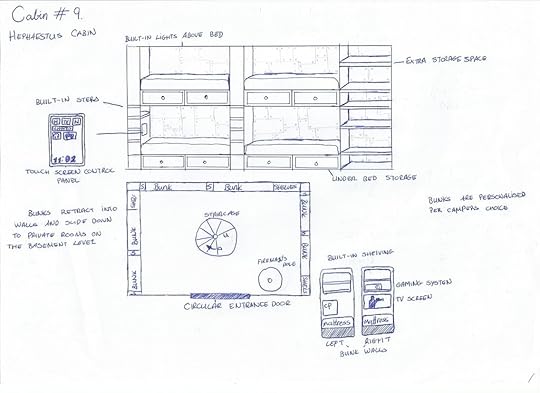 Cabin # 9.
HEPHAESTUS CABIN
BUILT-IN LIGHTS ABOVE BED
EXTRA STORAGE SPACE
BUILT-IN STEPS
11:02
TOUCH SCREEN CONTROL
PANEL
UNDER BED STORAGE
BUNKS RETRACT INTO
WALLS AND SLIDE DOWN
TO PRIVATE ROOMS ON
THE BASEMENT LEVEL
S BUNK S BUNK SHELVES
BUNK
BUNK
BUNK
BUNK
STAIRCASE
FIREMAN'S
POLE
CIRCULAR ENTRANCE DOOR
BUNKS ARE PERSONALISED
PER CAMPERS CHOICE
BUILT-IN SHELVING
GAMING SYSTEM
TV SCREEN
CP
mattress
mattress
LEFT RIGHT
BUNK WALLS